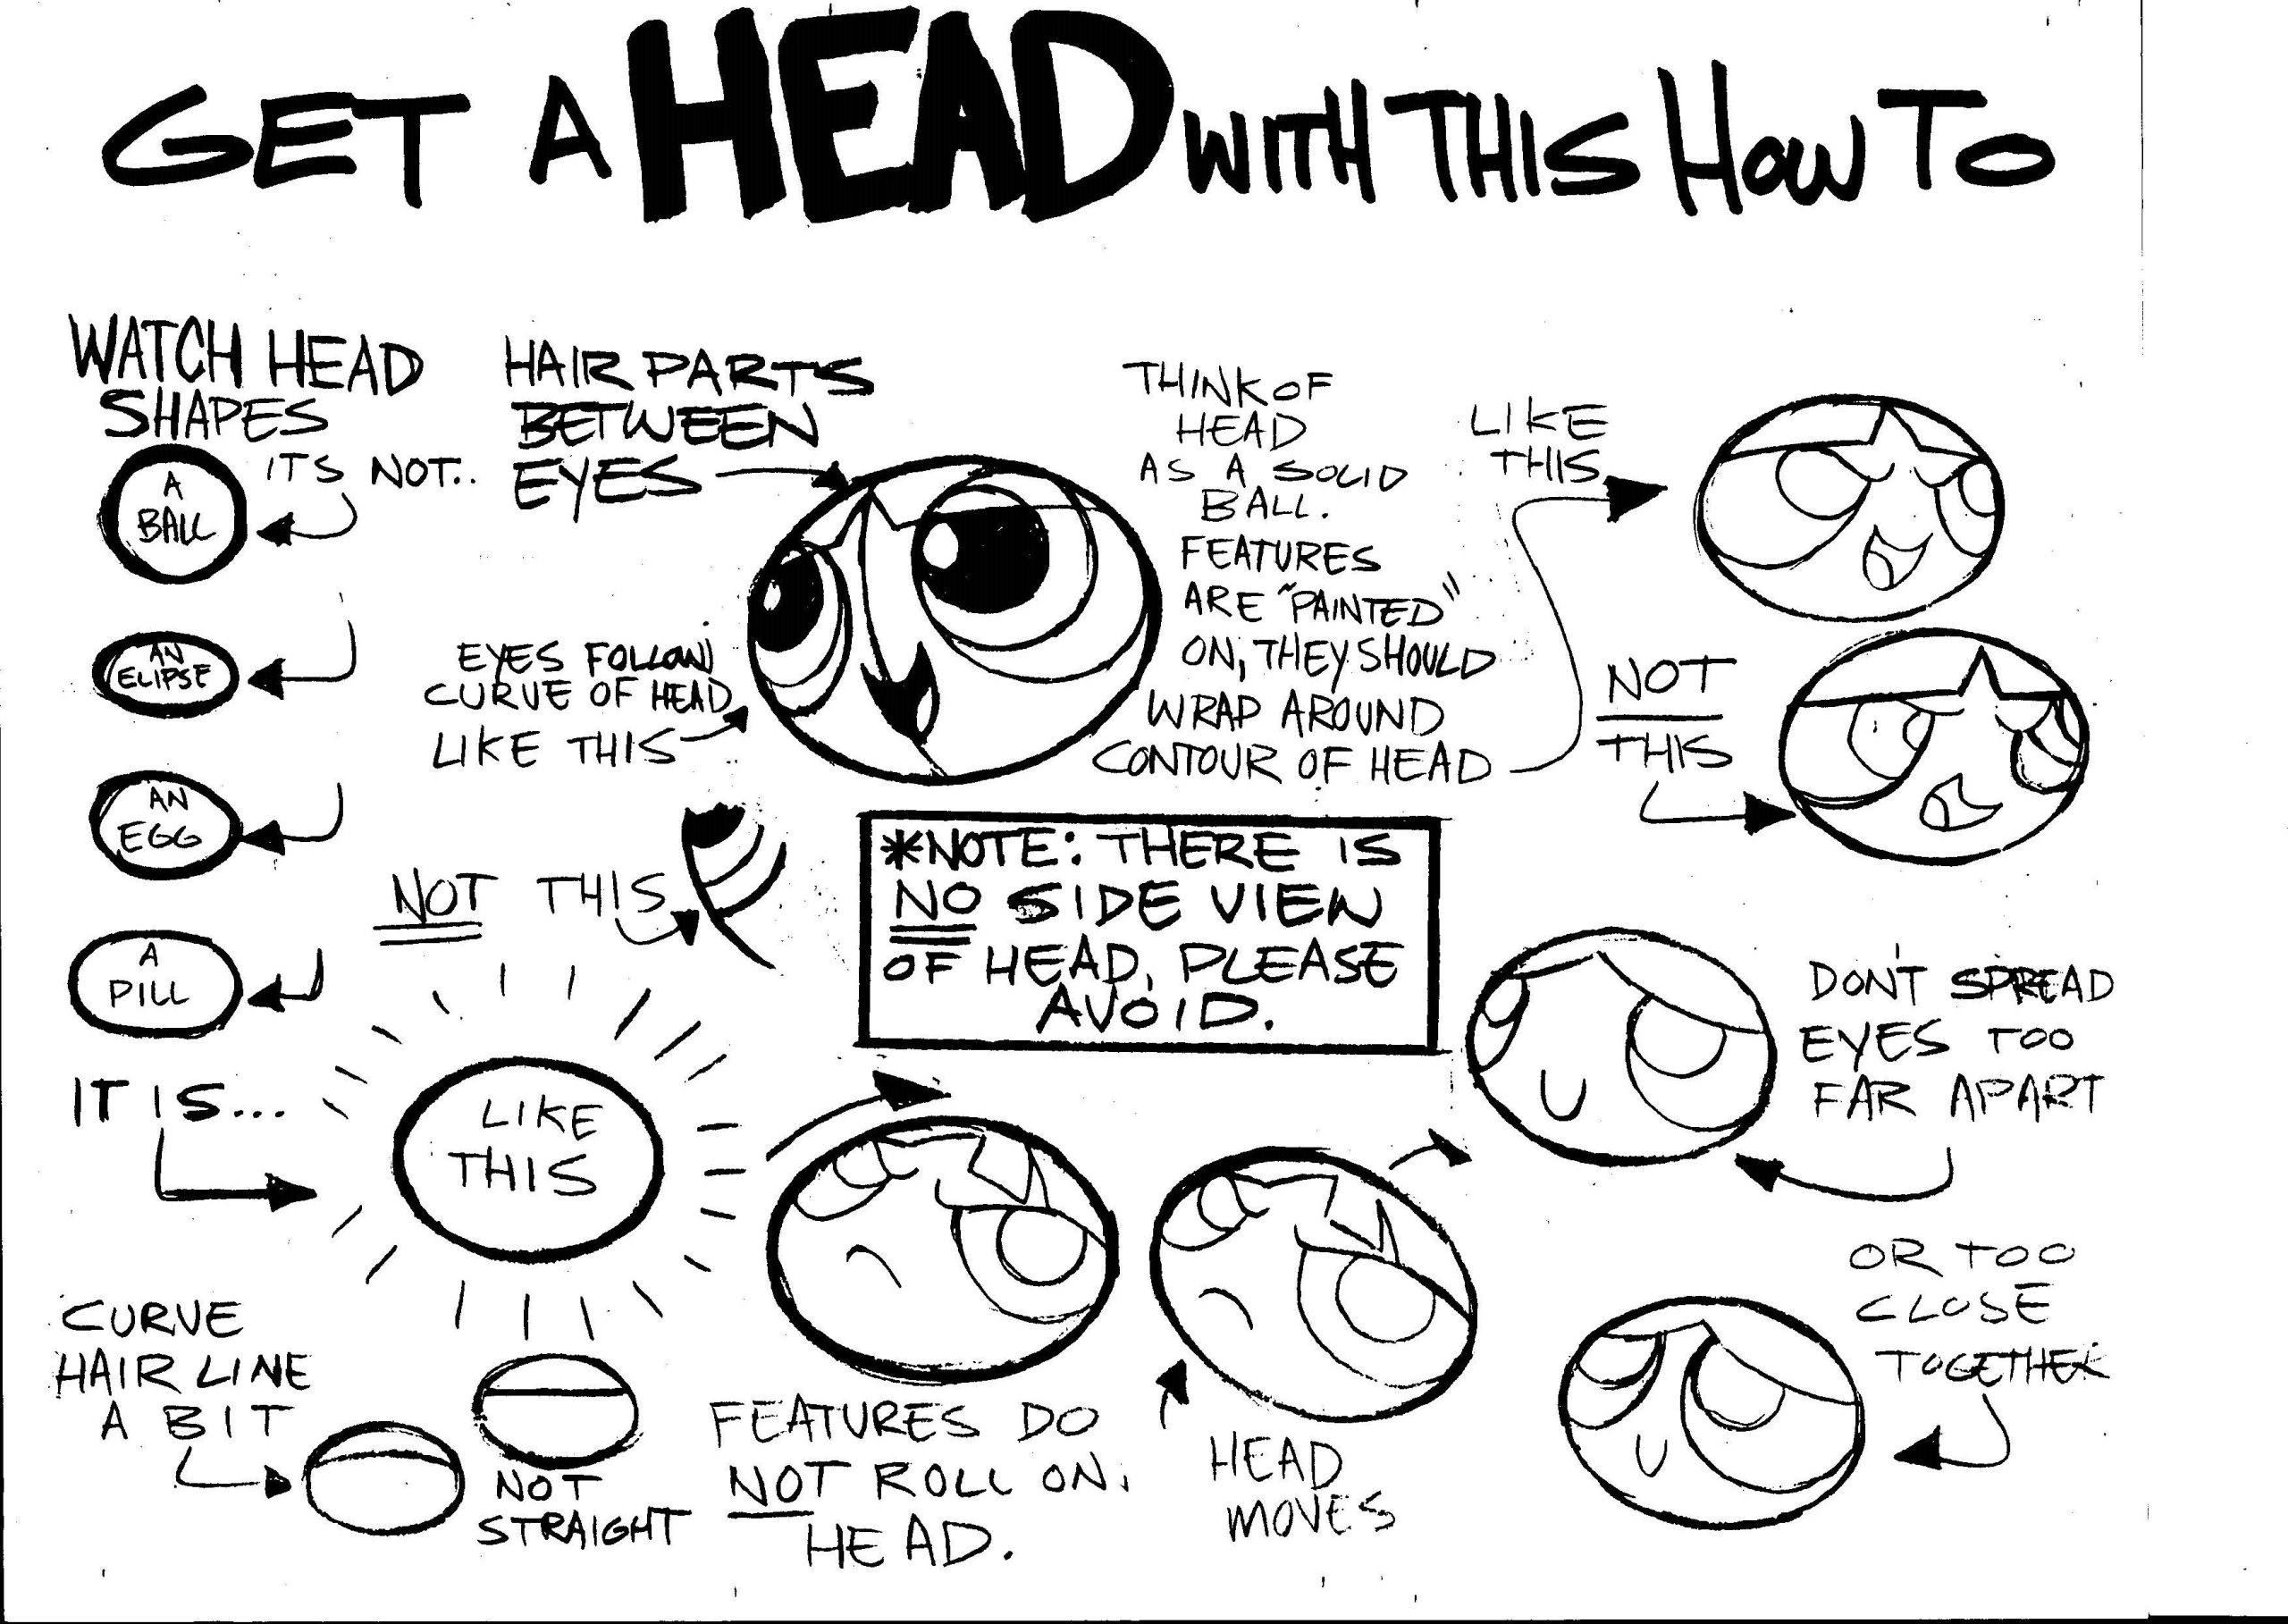 GET A HEAD WITH THIS HOW TO
WATCH HEAD
SHAPES
ITS NOT..
A
BALL
AN
ELIPSE
AN
EGG
A
PILL
IT IS...
LIKE
THIS
CURVE
HAIR LINE
A BIT
NOT
STRAIGHT
HAIR PARTS
BETWEEN
EYES
EYES FOLLOW
CURVE OF HEAD
LIKE THIS
NOT THIS
THINK OF
HEAD
AS A SOLID
BALL.
FEATURES
ARE "PAINTED"
ON, THEY SHOULD
WRAP AROUND
CONTOUR OF HEAD
LIKE
THIS
NOT
THIS
*NOTE: THERE IS
NO SIDE VIEW
OF HEAD, PLEASE
AVOID.
FEATURES DO
NOT ROLL ON.
HEAD.
HEAD
MOVES
DON'T SPREAD
EYES TOO
FAR APART
OR TOO
CLOSE
TOGETHER